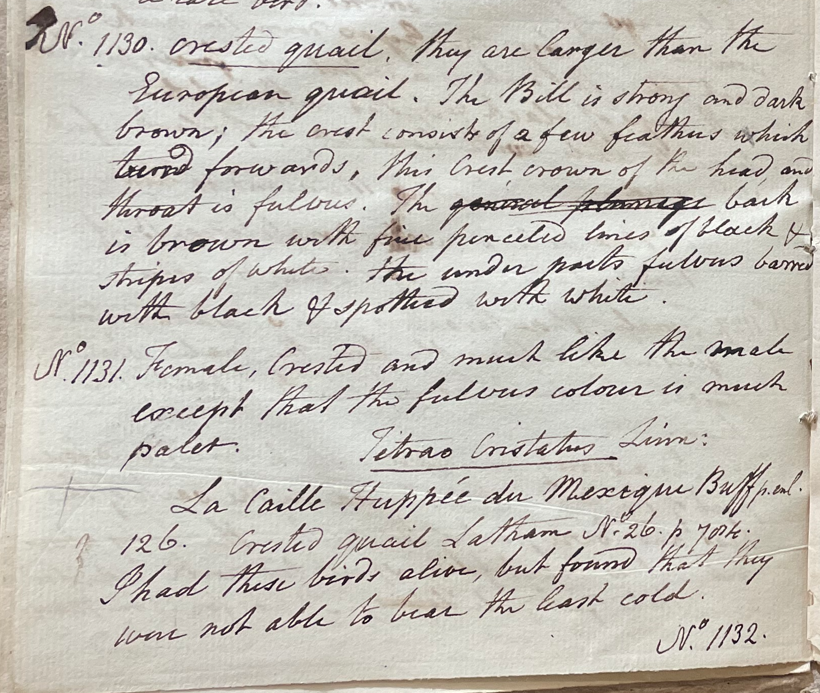 a rare bird.
No. 1130. Crested quail. They are larger than the
European quail. The Bill is strong and dark
brown; the crest consists of a few feathers which
forwards, this Crest crown of the head and
throat is fulvous. The general plumage back
is brown with fine penceled lines of black &
stripes of white. the under parts fulvous barred
with black & spotted with white.
No. 1131. Female, Crested and much like the male
except that the fulvous colour is much
paler. Tetrao Cristatus Linn:
La Caille Huppée du Mexique Buff p.enl.
126. Crested quail Latham No. 26. p.
I had these birds alive, but found that they
were not able to bear the least cold.
No. 1132.